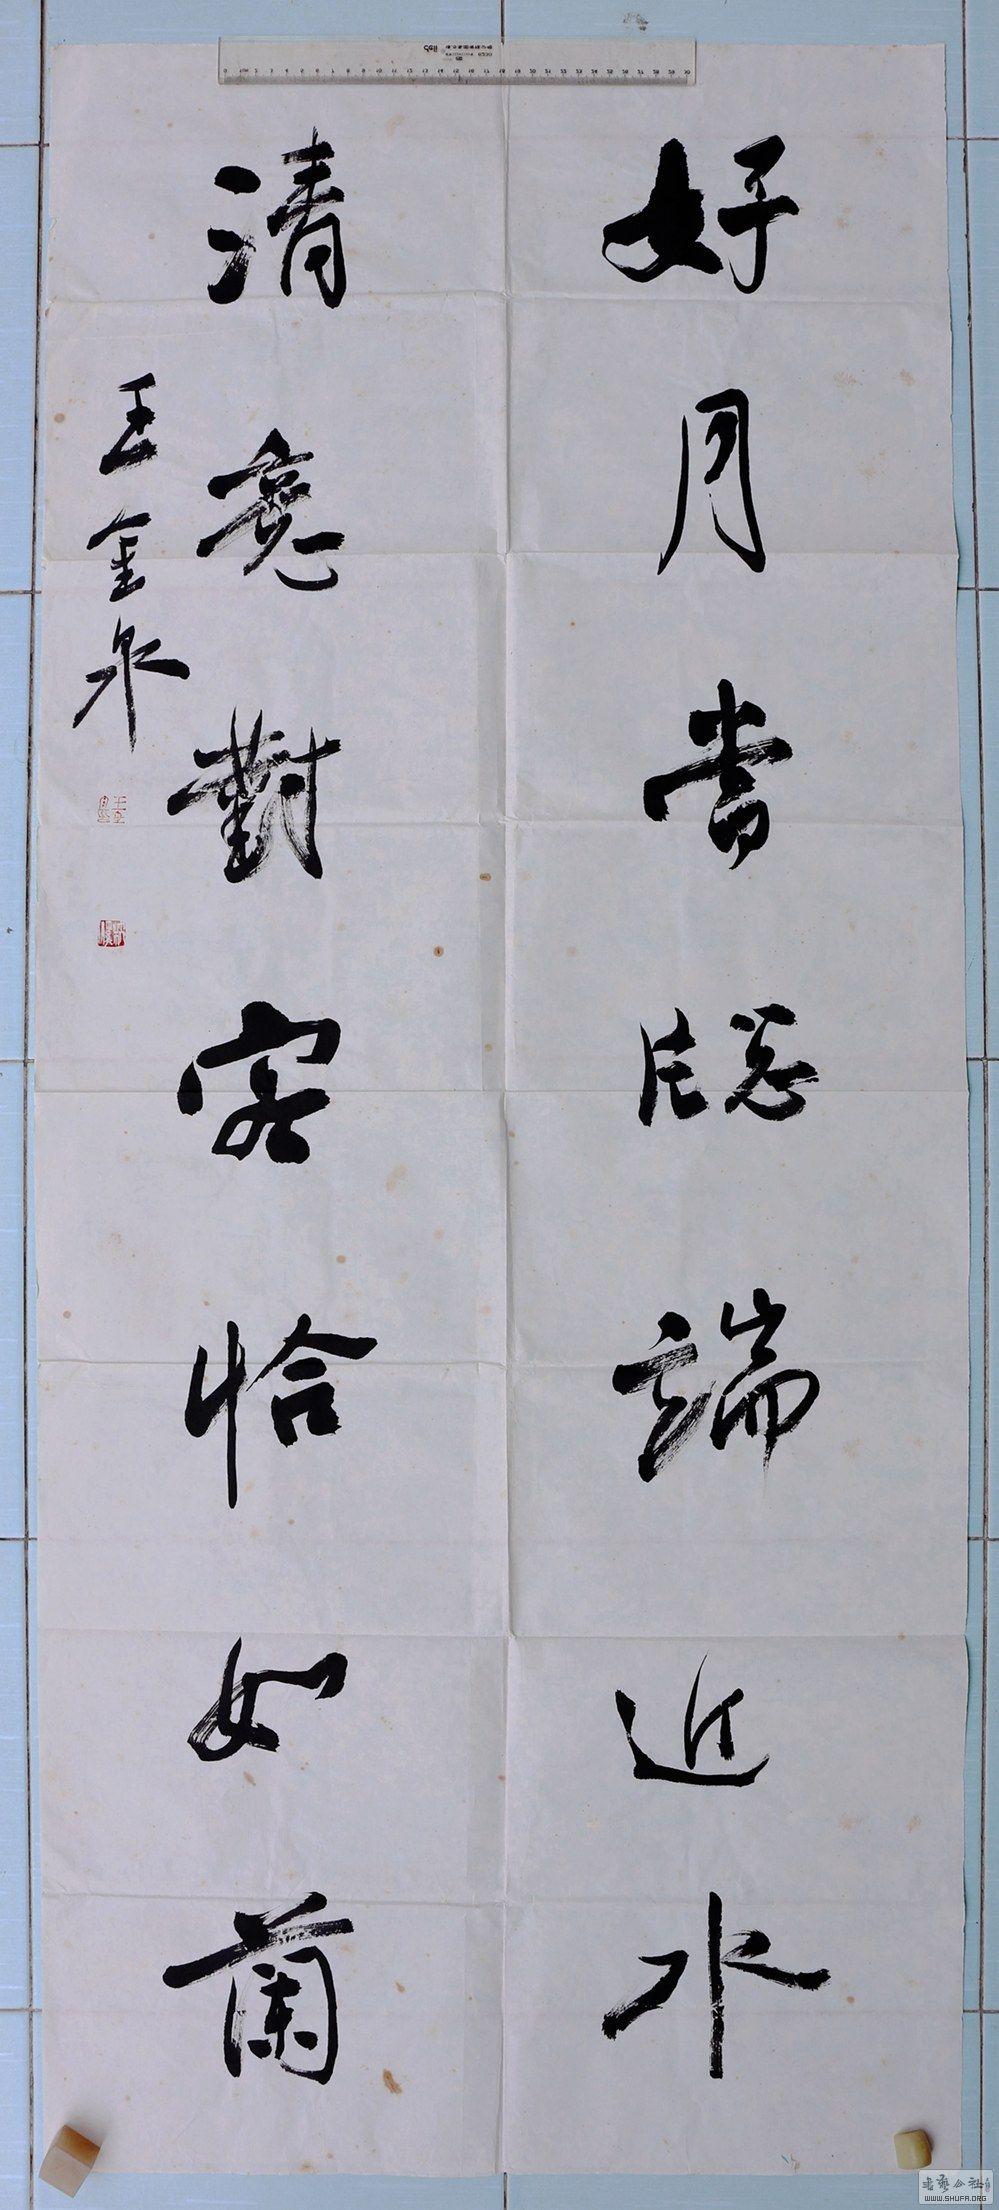 好月當牕端近水
清意對客恰如蘭
王金泉
書藝公社
WWW.SHUFA.ORG